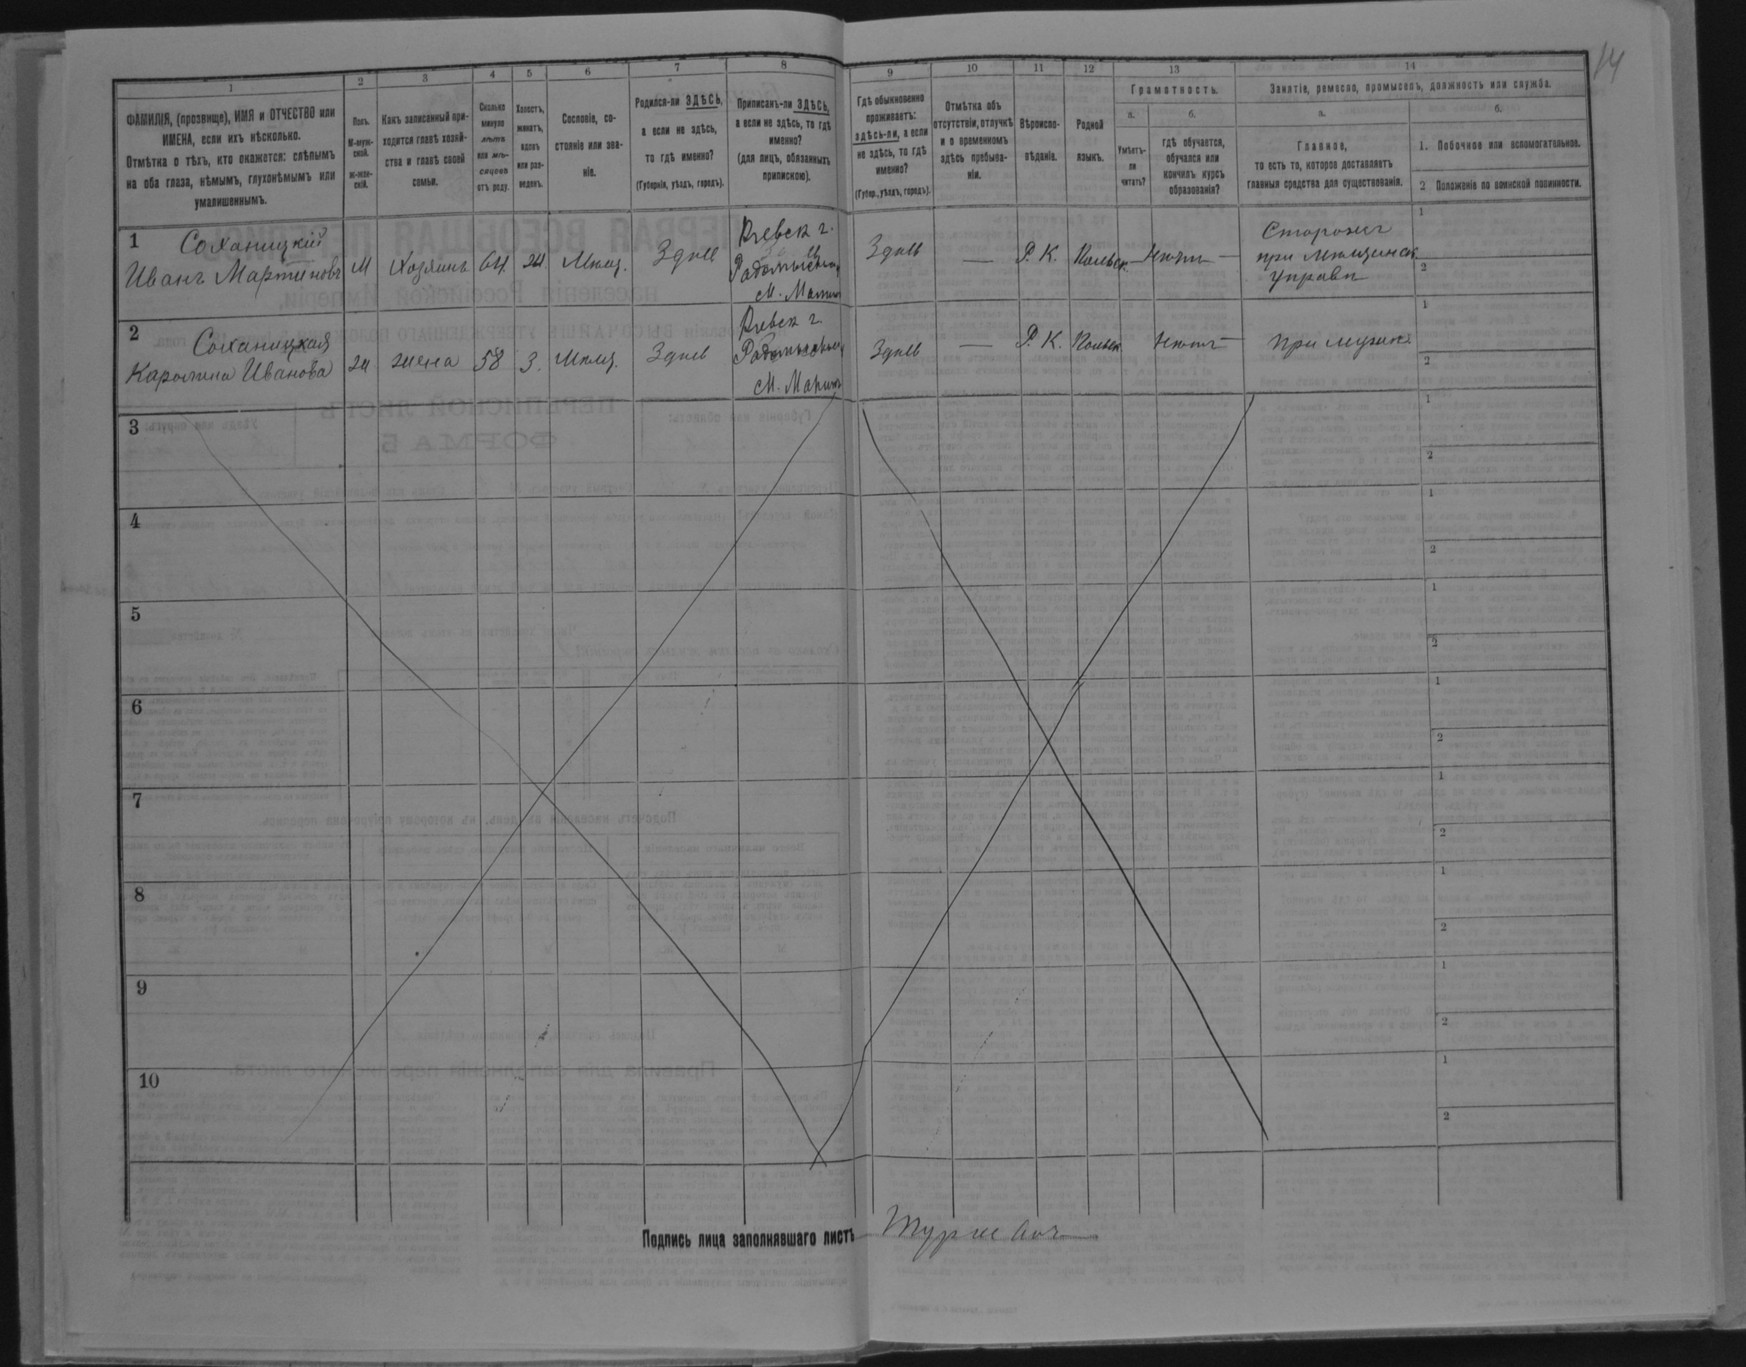 14
1
2
3
4
5
6
7
8
9
10
11
12
13
14
ФАМИЛІЯ, (прозвище), ИМЯ и ОТЧЕСТВО или
ИМЕНА, если ихъ нѣсколько.
Отмѣтка о тѣхъ, кто окажется: слѣпымъ
на оба глаза, нѣмымъ, глухонѣмымъ или
умалишеннымъ.
Полъ.
М-муж-
ской.
Ж-жен-
скій.
Какъ записанный при-
ходится главѣ хозяй-
ства и главѣ своей
семьи.
Сколько
минуло
лѣтъ
или мѣ-
сяцевъ
отъ роду.
Холостъ,
женатъ,
вдовъ
или раз-
веденъ.
Сословіе, со-
стояніе или зва-
ніе.
Родился-ли ЗДѢСЬ,
а если не здѣсь,
то гдѣ именно?
(Губернія, уѣздъ, городъ).
Приписанъ-ли ЗДѢСЬ,
а если не здѣсь, то гдѣ
именно?
(для лицъ, обязанныхъ
припискою).
Гдѣ обыкновенно
проживаетъ:
здѣсь-ли, а если
не здѣсь, то гдѣ
именно?
(Губер., уѣздъ, городъ).
Отмѣтка объ
отсутствіи, отлучкѣ
и о временномъ
здѣсь пребыва-
ніи.
Вѣроиспо-
вѣданіе.
Родной
языкъ.
Грамотность.
а.
Умѣетъ-
ли
читать?
б.
гдѣ обучается,
обучался или
кончилъ курсъ
образованія?
Занятіе, ремесло, промыселъ, должность или служба.
а.
Главное,
то есть то, которое доставляетъ
главныя средства для существованія.
б.
1. Побочное или вспомогательное.
2 Положеніе по воинской повинности.
1
Соханицкій
Иванъ Мартиновъ
М
Хозяинъ
64
Мѣщ.
Здѣсь
Кіевск г.
М.
Здѣсь
—
Р. К.
Польск
нѣтъ
Сторожъ
при мѣщанск
управѣ
1
2
2
Соханицкая
Каролина Иванова
жена
58
З.
Мѣщ.
Здѣсь
Кіевск г.
М.
Здѣсь
—
Р. К.
Польск
нѣтъ
При мужѣ
1
2
3
1
2
4
1
2
5
1
2
6
1
2
7
1
2
8
1
2
9
1
2
10
1
2
Подпись лица заполнявшаго листъ